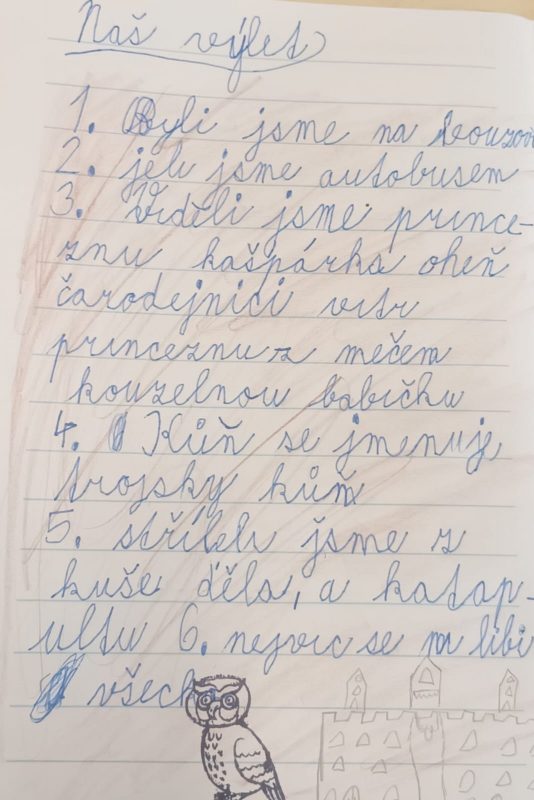 Náš výlet
1. Byli jsme na bouzov
2. jeli jsme autobusem
3. Viděli jsme prince-
znu kašpárka oheň
čarodejnici vitr
princeznu z mečem
kouzelnou babičku
4. Kůň se jmenuje
trojsky kůň
5. stříleli jsme z
kuše děla, a katap-
ultu 6. nejvic se mi libi
všech